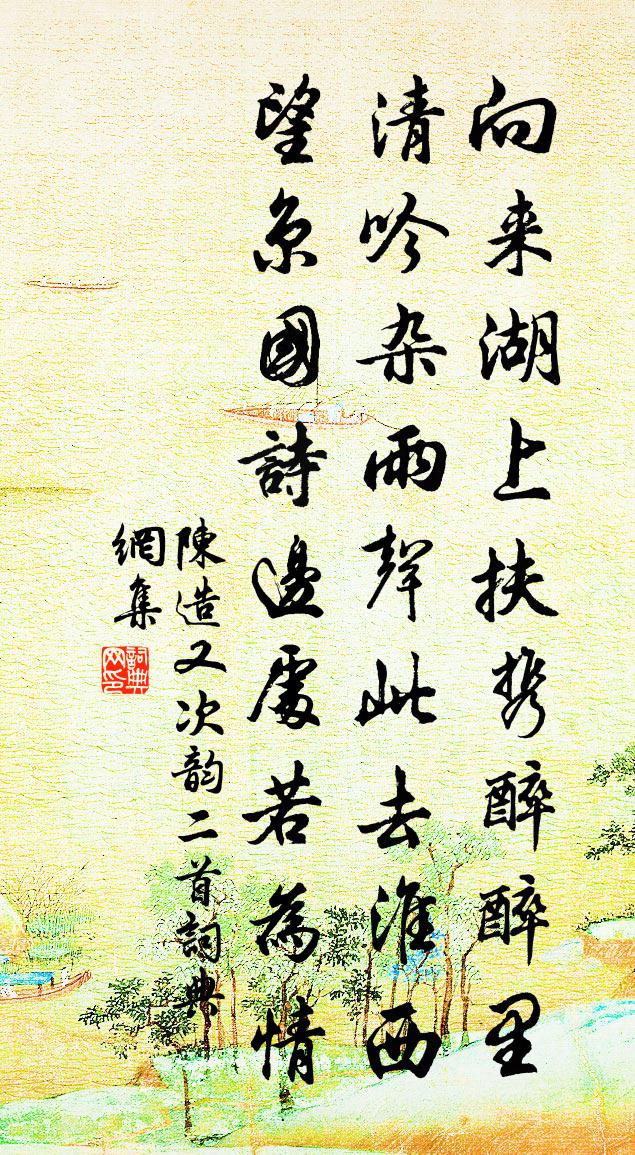 向来湖上扶携醉醉里
清吟杂雨聲此去淮西
望京國詩邊處若為情
陳造又次韵二首詞典
網集
詞典
网印